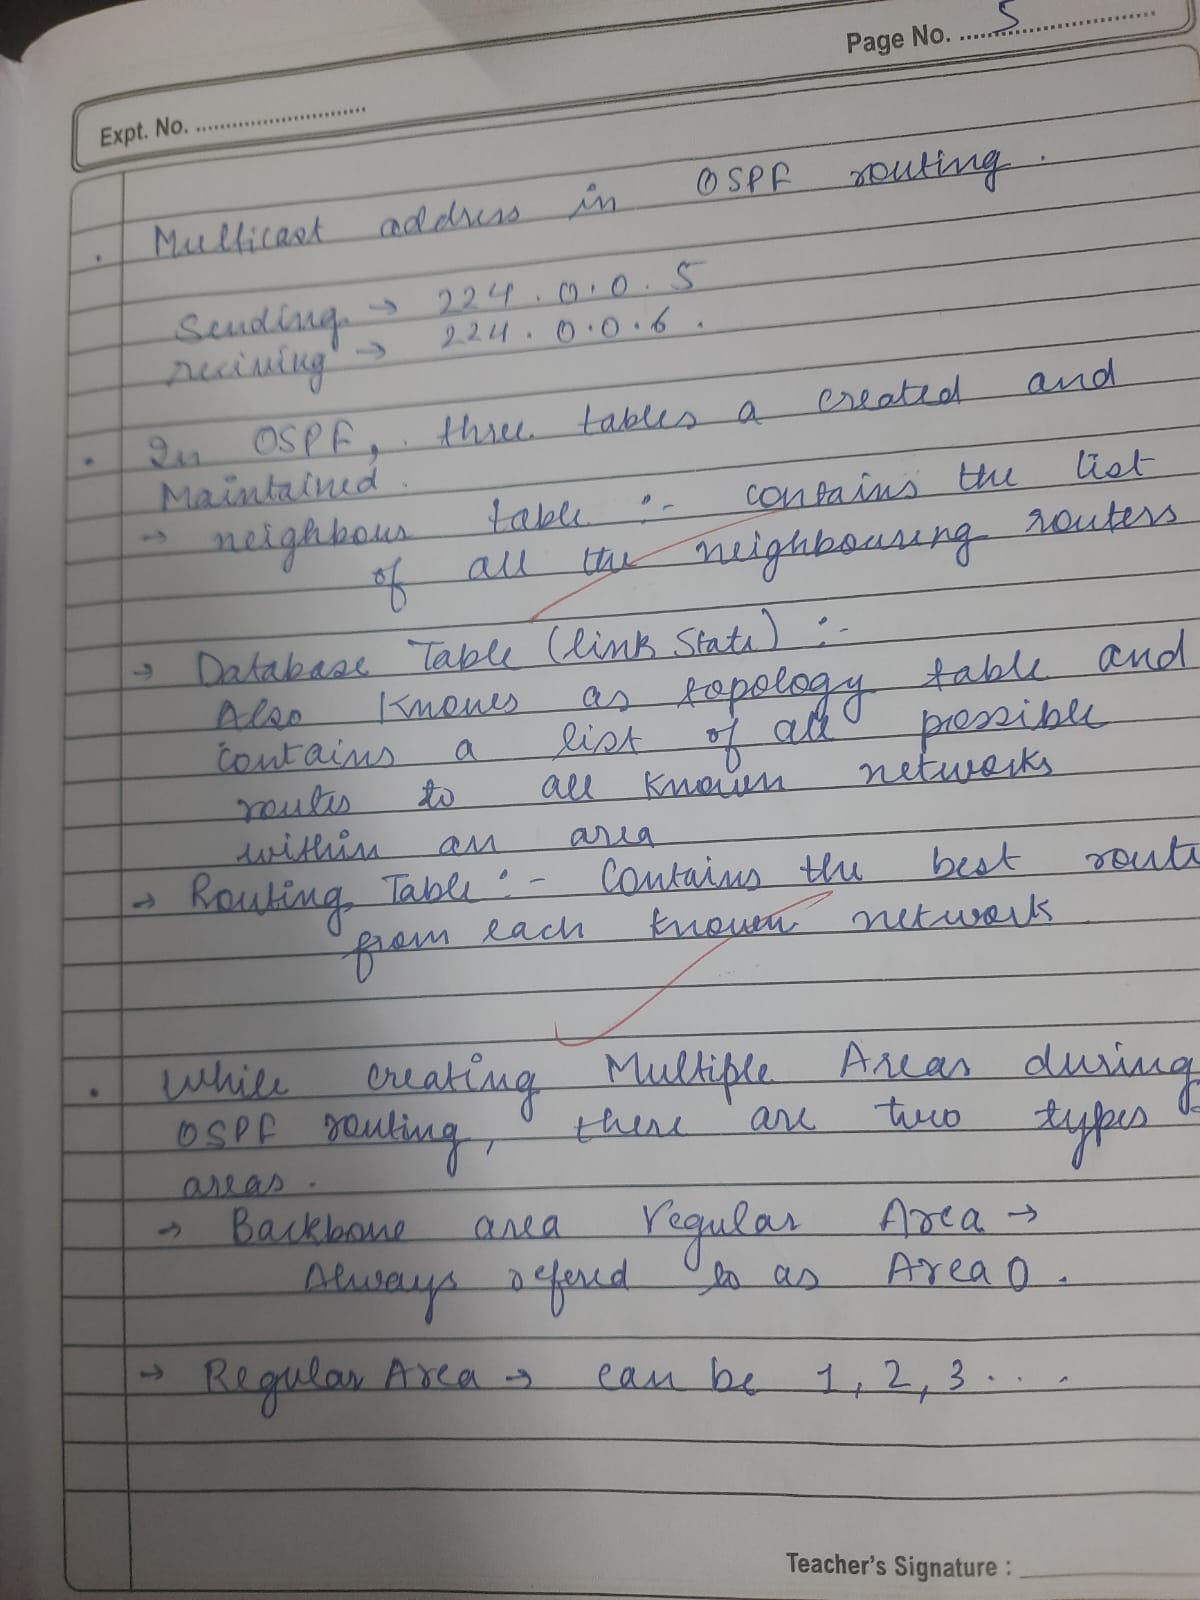 Page No. 5
Expt. No.
. Multicast address in OSPF routing.
Sending → 224.0.0.5
reciving → 224.0.0.6.
. In OSPF, three tables a created and
Maintained.
→ neighbour table :- contains the list
of all the neighbouring routers
→ Database Table (link State) :-
Also Knowes as topology table and
contains a list of all possible
routes to all known networks
within an area
→ Routing Table :- Contains the best route
from each known network
. While creating Multiple Areas during
OSPF routing, there are two types
areas.
→ Backbone area regular Area →
Always refered to as Area 0.
→ Regular Area → can be 1, 2, 3 ...
Teacher's Signature :